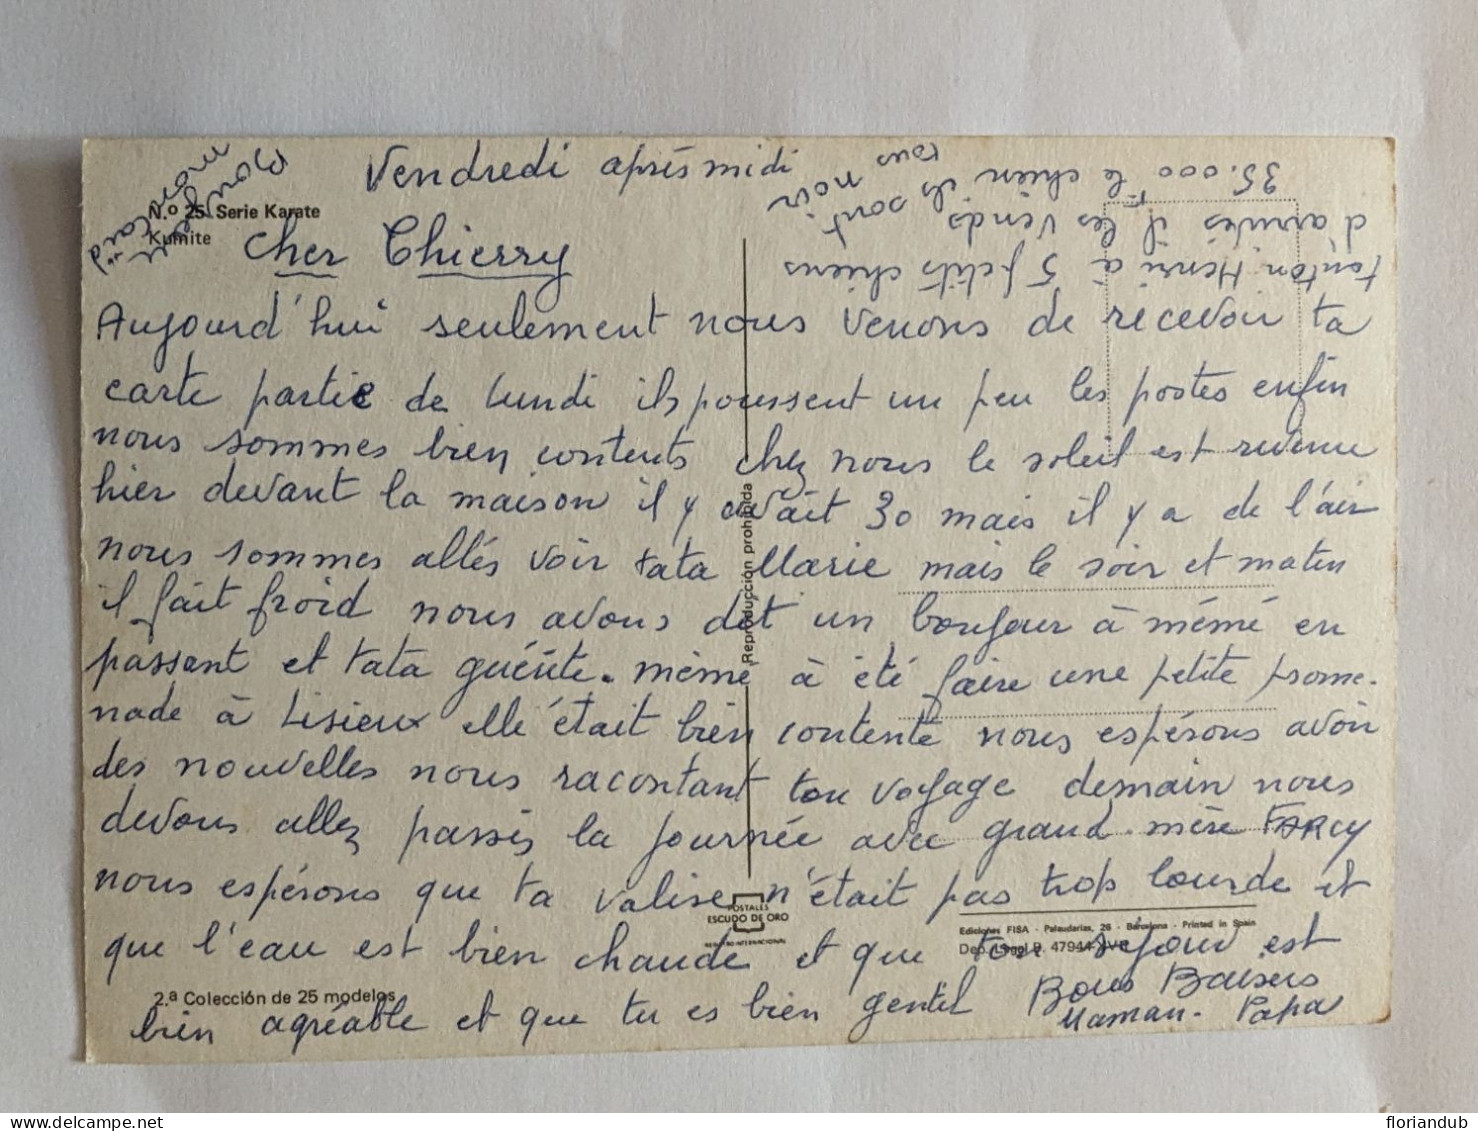 Vendredi aprés midi
N.º 25 Serie Karate
Kumite
Cher Thierry
Aujourd'hui seulement nous venons de recevoir ta
carte partie de Lundi ils poussent un peu les postes enfin
nous sommes bien contents chez nous le soleil est revenu
hier devant la maison il y avait 30 mais il y a de l'air
nous sommes allés voir tata Marie mais le soir et matin
il fait froid nous avons dit un bonjour à mémé en
passant et tata mémé à été faire une petite prome-
nade à Lisieux elle était bien contente nous espérons avoir
des nouvelles nous racontant ton voyage demain nous
devons allez passés la journée avec grand-mère FARCY
nous espérons que ta valise n'était pas trop lourde et
que l'eau est bien chaude et que ton séjour est
bien agréable et que tu es bien gentil Bons Baisers
Maman - Papa
tonton Henri à 5 petits chiens
d'arrivés il les vends
35.000 F le chien ils sont
tous noir
Reproducción prohibida
POSTALES
ESCUDO DE ORO
Ediciones FISA - Palaudarias, 26 - Barcelona - Printed in Spain
Dep. Legal B. 47944
2.ª Colección de 25 modelos
floriandub